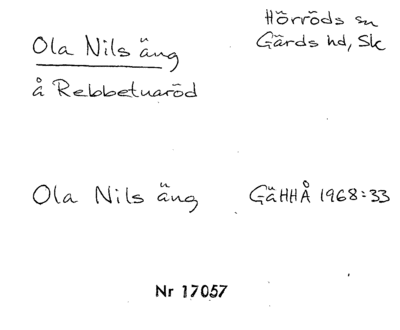 Hörröds sn
Gärds hd, Sk
Ola Nils äng
å Rebbetuaröd
Ola Nils äng GäHHÅ 1968:33
Nr 17057